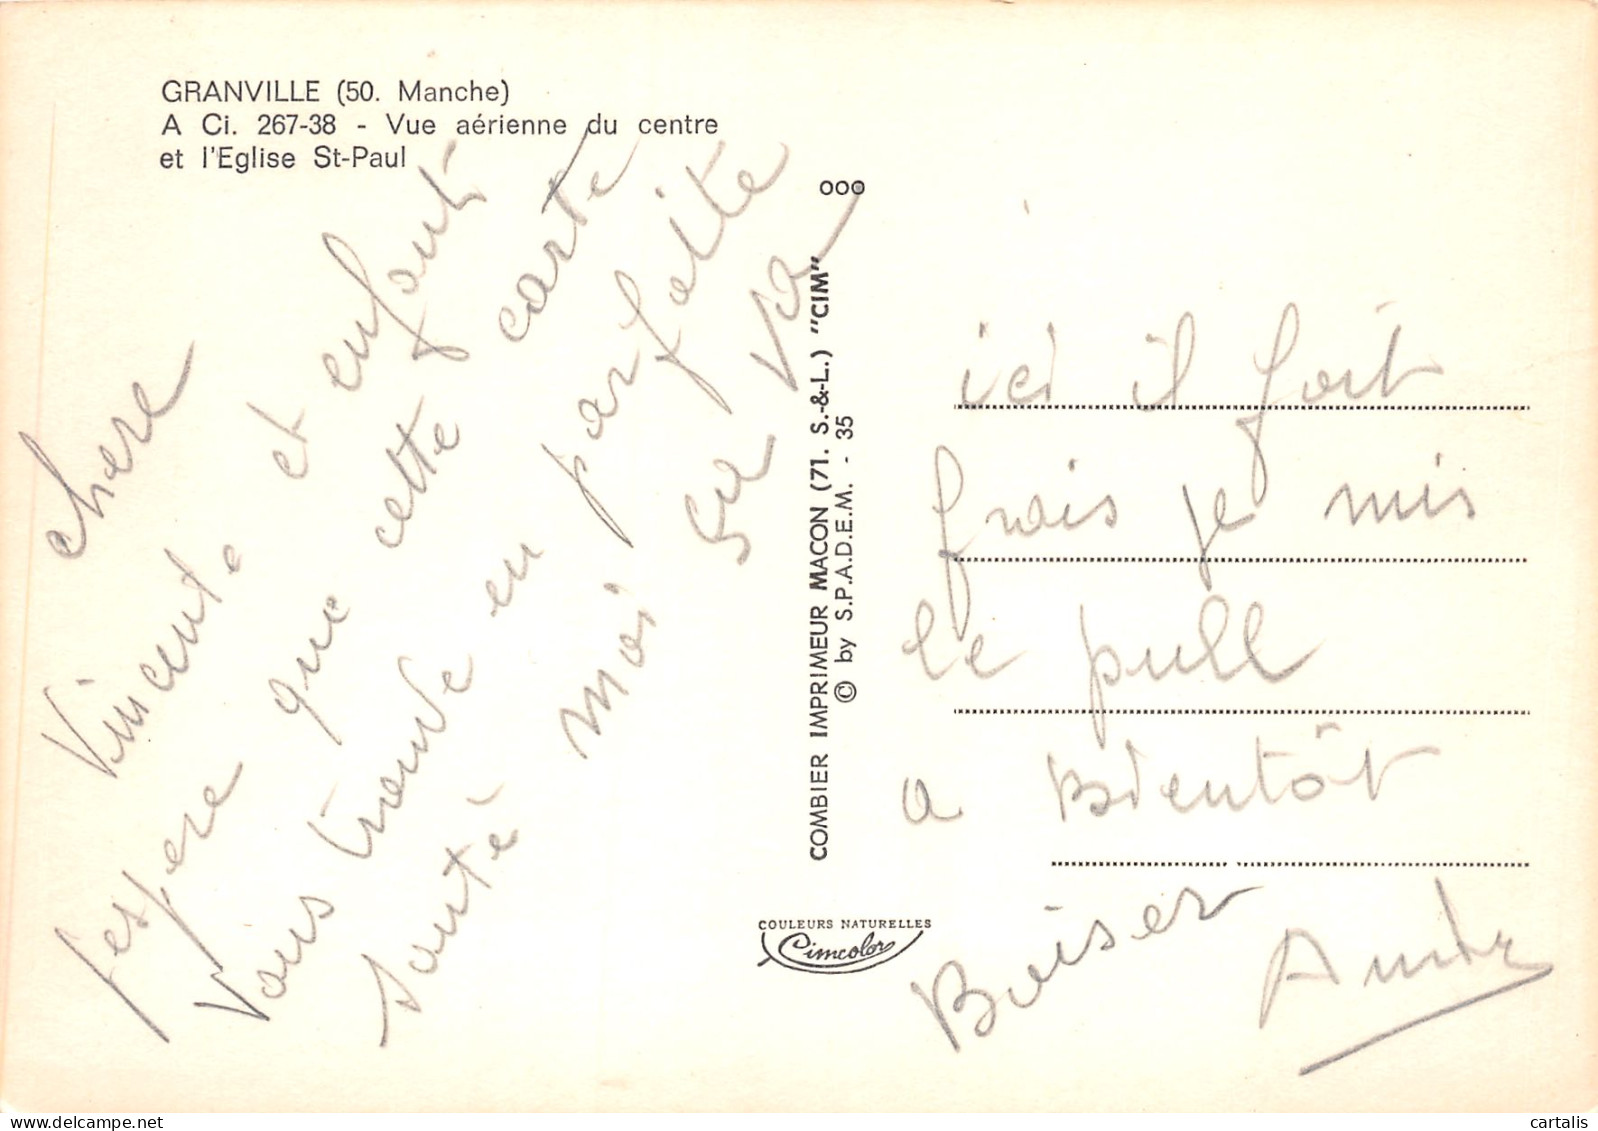 GRANVILLE (50. Manche)
A Ci. 267-38 - Vue aérienne du centre
et l'Eglise St-Paul
chere
Vincente et enfants
j'espere que cette carte
vous trouve en parfaite
santé moi sa va
COMBIER IMPRIMEUR MACON (71. S.-&-L.) "CIM"
© by S.P.A.D.E.M. - 35
COULEURS NATURELLES
Cimcolor
ici il fait
frais je mis
le pull
a Bientôt
Baiser
cartalis